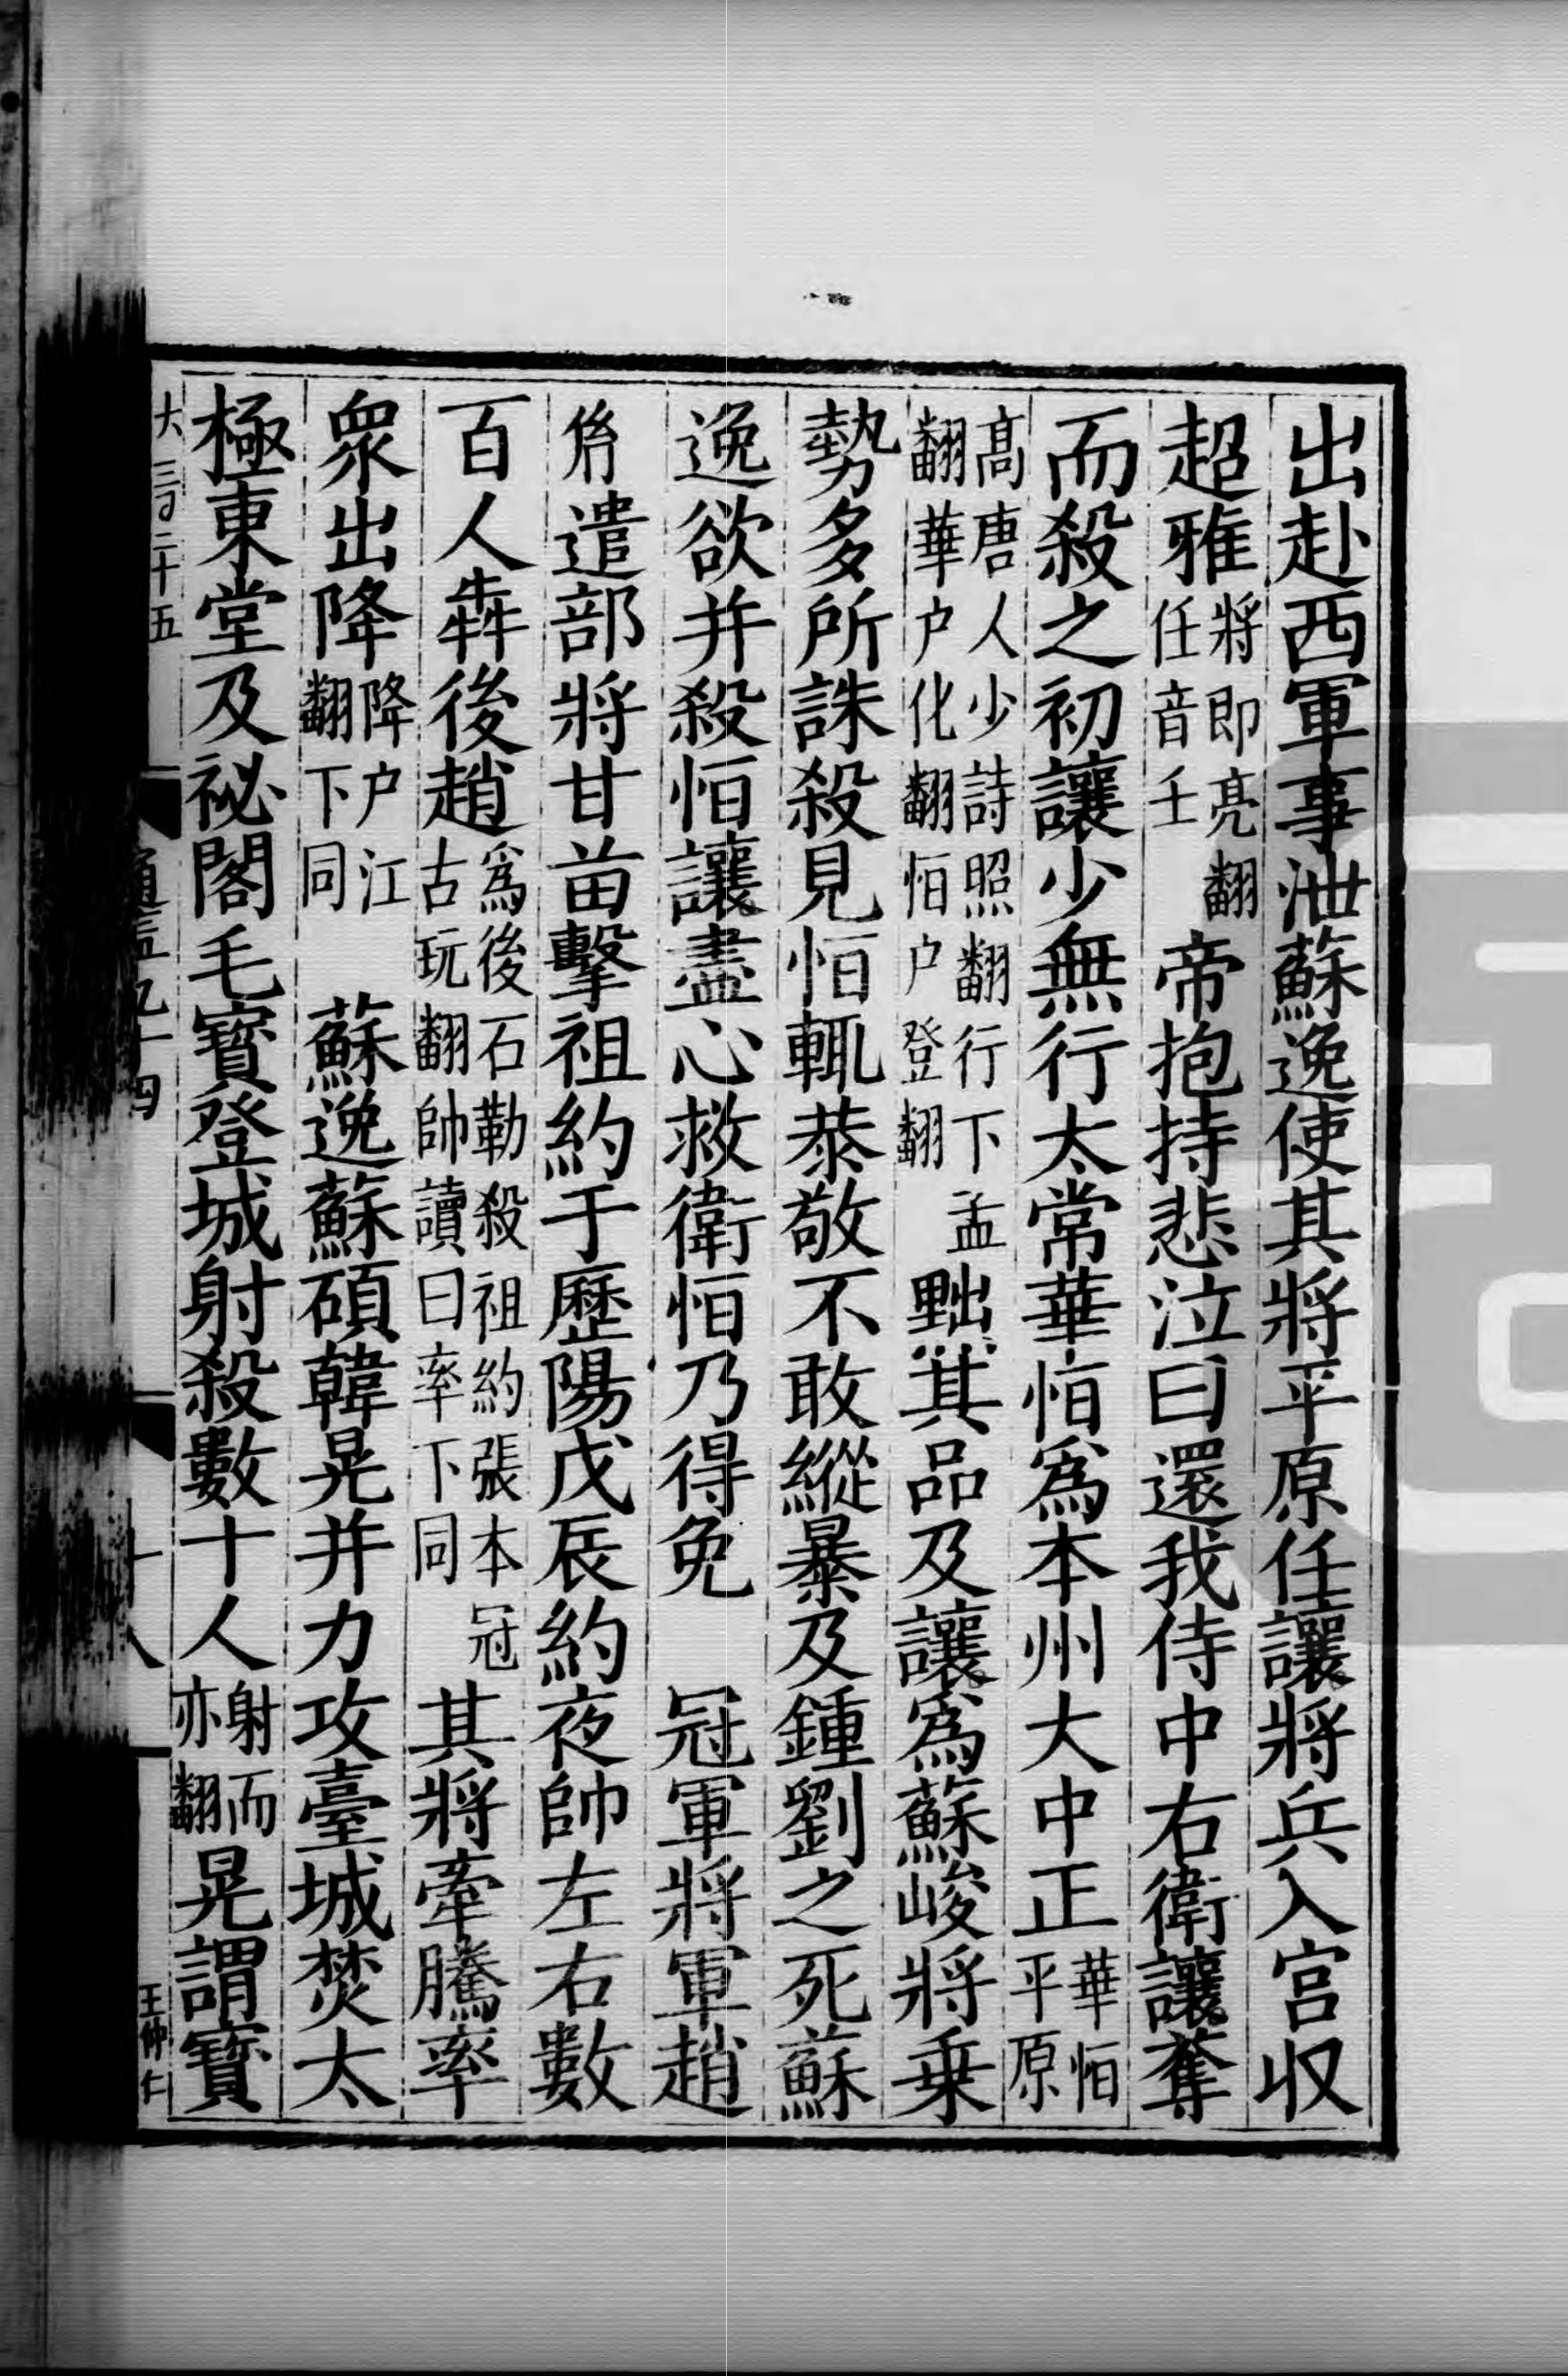 出赴西軍事泄蘇逸使其將平原任讓將兵入宫収
超雅將即亮翻任音壬帝抱持悲泣曰還我侍中右衛讓奪
而殺之初讓少無行太常華恒爲本州大中正華恒平原
高唐人少詩照翻行下孟翻華户化翻恒户登翻黜其品及讓爲蘇峻將乗
勢多所誅殺見恒輒恭敬不敢縱暴及鍾劉之死蘇
逸欲并殺恒讓盡心救衛恒乃得免 冠軍將軍趙
㣧遣部將甘苗擊祖約于歷陽戊辰約夜帥左右數
百人犇後趙爲後石勒殺祖約張本冠古玩翻帥讀曰率下同其將牽騰率
衆出降降户江翻下同 蘇逸蘇碩韓晃并力攻臺城焚太
極東堂及祕閣毛寶登城射殺數十人射而亦翻晃謂寶
大三百二十五
通五九十四
十八
王仲仁